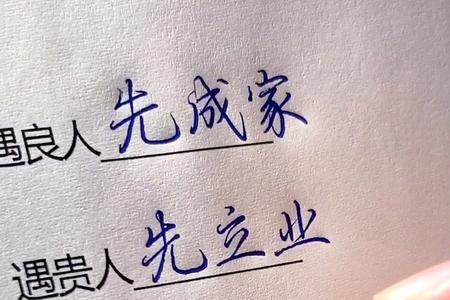 遇良人先成家
遇贵人先立业